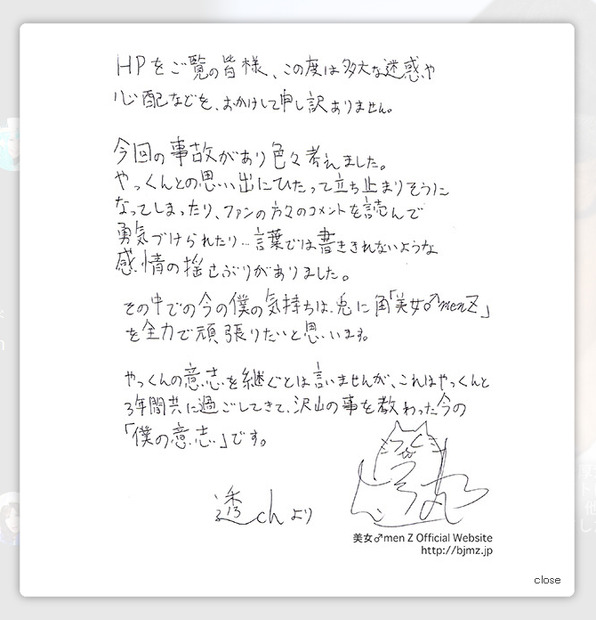 HPをご覧の皆様、この度は多大な迷惑や
心配などを、おかけして申し訳ありません。
今回の事故があり色々考えました。
やっくんとの思い出にひたって立ち止まりそうに
なってしまったり、ファンの方々のコメントを読んで
勇気づけられたり…言葉では書ききれないような
感情の揺さぶりがありました。
その中での今の僕の気持ちは、兎に角「美女♂menZ」
を全力で頑張りたいと思います。
やっくんの意志を継ぐとは言いませんが、これはやっくんと
3年間共に過ごしてきて、沢山の事を教わった今の
「僕の意志」です。
透chより
美女♂men Z Official Website
http://bjmz.jp
close